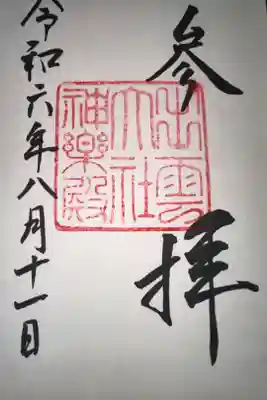 參拝
出雲
大社
神樂殿
令和六年八月十一日